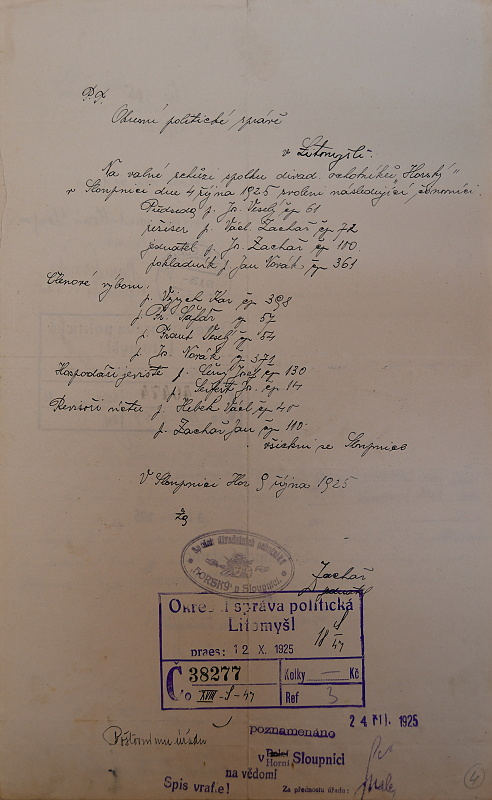 P.T.
Okresní politické správě
v Litomyšli.
Na valné schůzi spolku divad. ochotníků „Horský"
v Sloupnici dne 4 října 1925 zvoleni následující činovníci.
Předseda p. Js. Veselý čp 61
režiser p. Václ. Zachař čp 72
jednatel p. Js. Zachař čp 110.
pokladník p Jan Novák čp 361
Členové výboru:
p. Vojtěch Kár čp 398
p. Fr. Šafář čp 57
p. Frant Veselý čp 54
p. Js Novák čp 371
Hospodáři jeviště p. Josef čp 130
p. Seifert Js. čp 14
Revisoři účtu p. Hebek Václ čp 45
p. Zachař Jan čp 110
všichni ze Sloupnice
V Sloupnici Hor 9 října 1925
Spolek divadelních ochotníků
„HORSKÝ" v Sloupnici
Zachař
jednatel
Okresní správa politická
Litomyšl
praes: 12 X. 1925
18 8/47
Č 38277
XVIII - 8 - 47
Kolky — Kč
Ref 3
24 XII. 1925
poznamenáno
v Dolní Sloupnici
Horní
Poštovnímu úřadu
na vědomí
Spis vraťte!
Za přednostu úřadu:
4